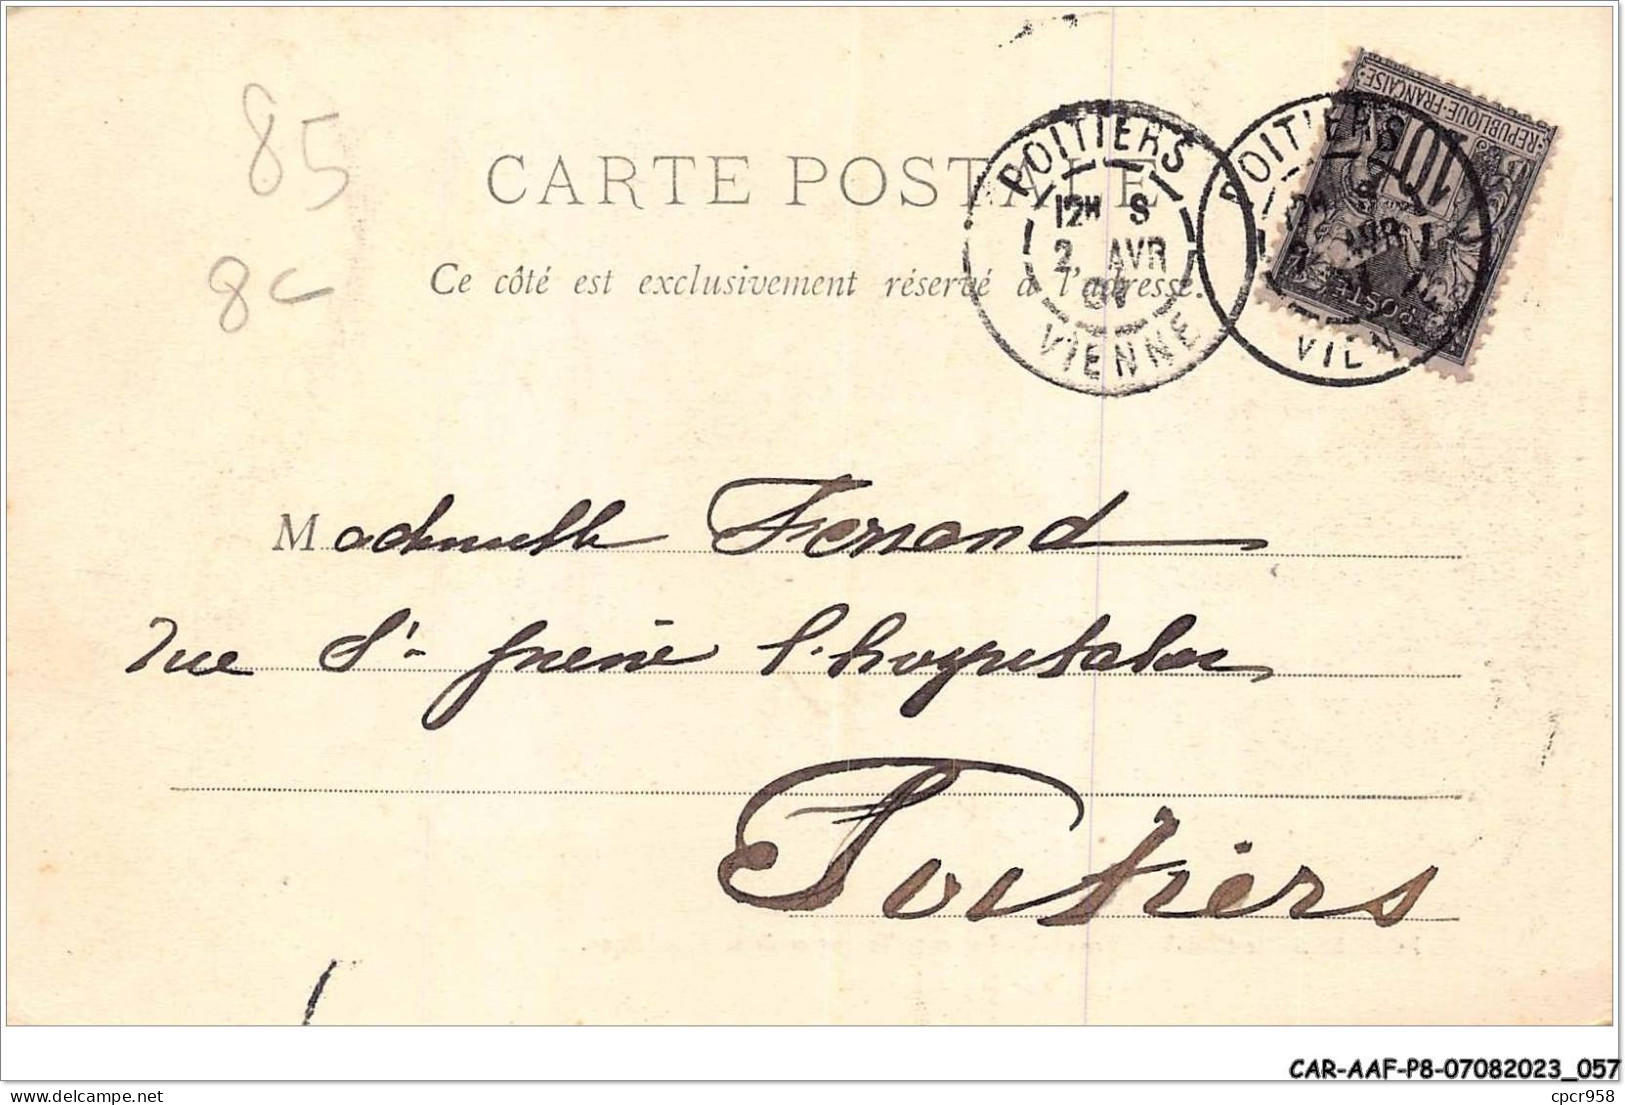 85
8c
CARTE POSTALE
Ce côté est exclusivement réservé à l'adresse.
POITIERS
12H S
2 AVR
01
VIENNE
POITIERS
AVR
REPUBLIQUE FRANÇAISE
10
POSTES
Mademoiselle Fernand
rue St-
Poitiers
CAR-AAF-P8-07082023_057
delcampe.net
cpcr958